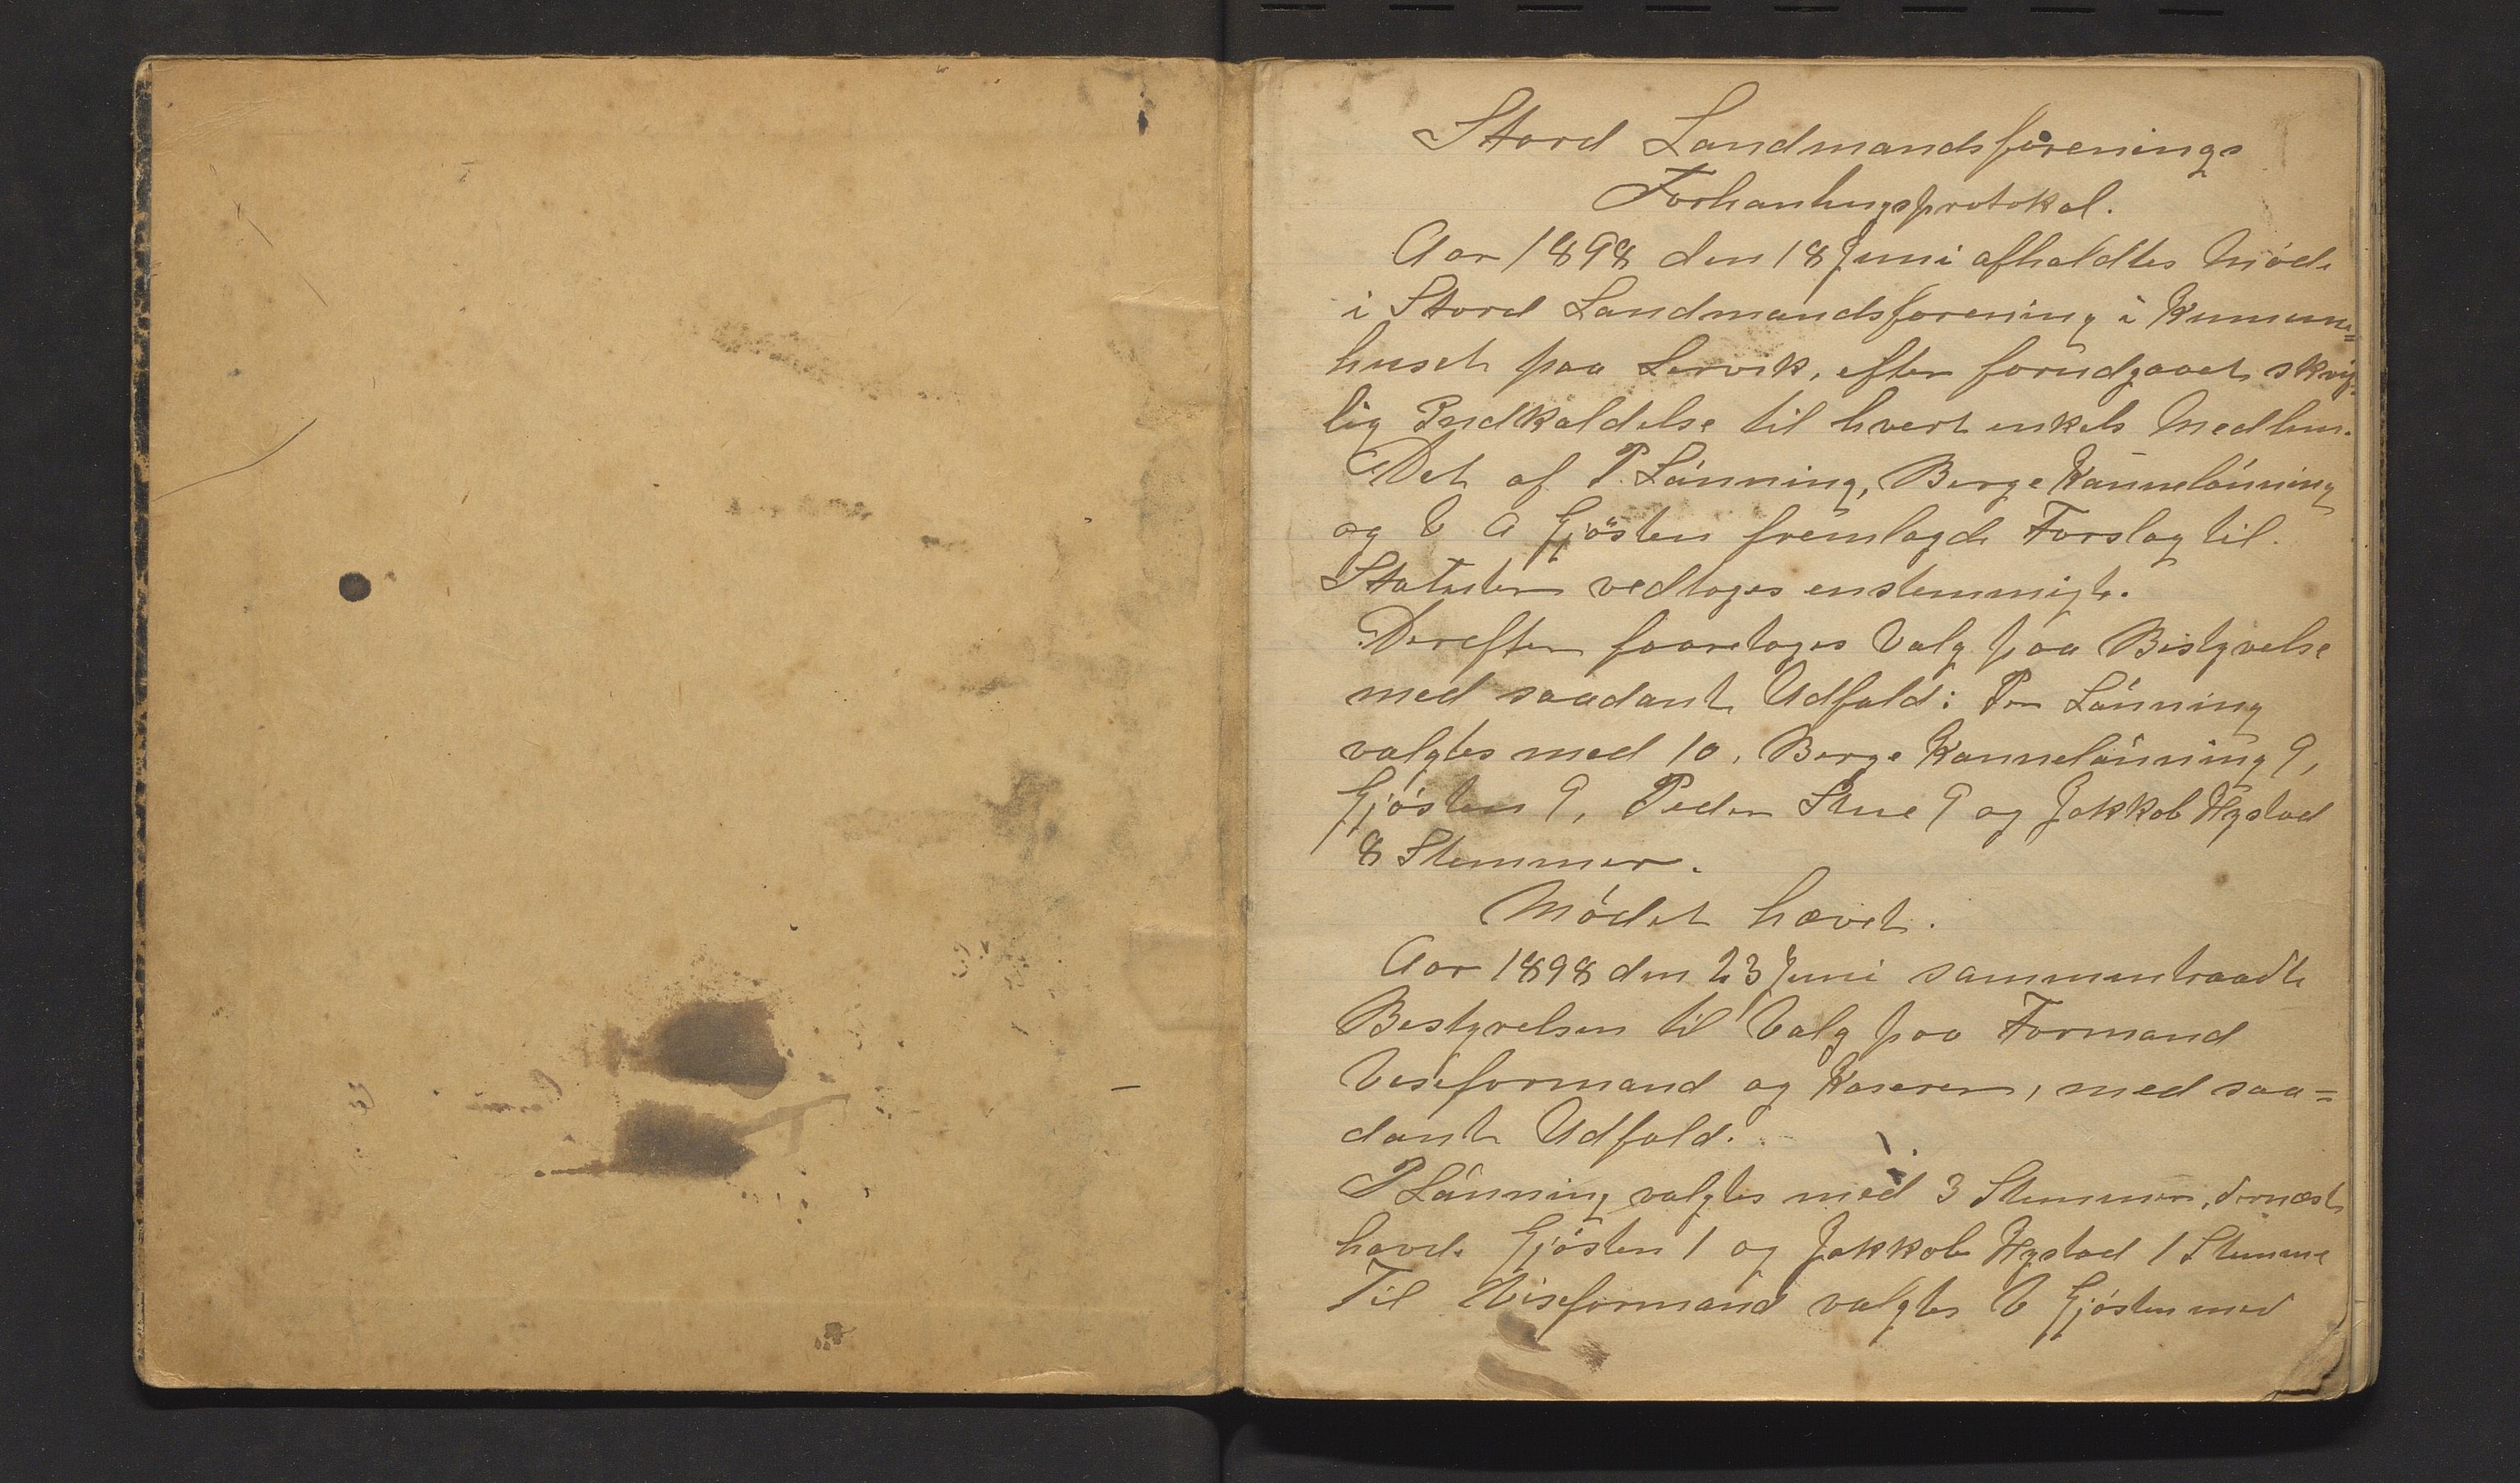 Stord Landmandsforenings
Forhanlingsprotokol.
Aar 1898 den 18 Juni afholdtes Møde
i Stord Landmandsforening i Kummune=
huset paa Lervik, efter forudgaaet skrif-
lig Indkaldelse til hvert enkelt Medlem.
Det af P. Lønning, Berge Kannelønning
og V A Gjøsten fremlagde Forslag til
Statuter vedtoges enstemmigt.
Derefter foaretoges Valg paa Bestyrelse
med saadant Udfald: Per Lønning
valgtes med 10, Berge Kannelønning 9,
Gjøsten 9, Peder Stue 9 og Jakkob Hystad
8 Stemmer.
Mødet hævet.
Aar 1898 den 23 Juni sammentraadte
Bestyrelsen til Valg paa Formand
Viseformand og Kaserer, med saa=
dant Udfald.
P Lønning valgtes med 3 Stemmer, dernæst
havde Gjøsten 1 og Jakkob Hystad 1 Stemme
Til Viseformand valgtes V Gjøsten med